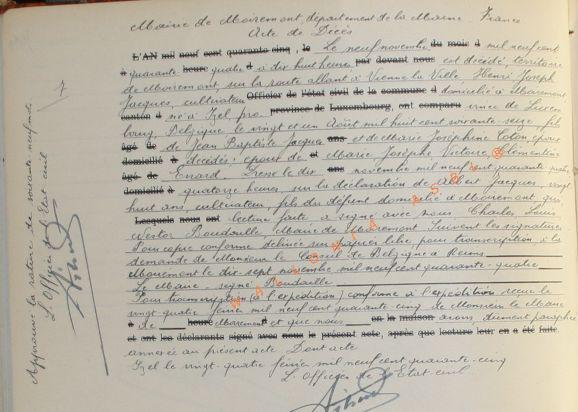 Mairie de Moiremont, département de la Marne. France
Acte de Décès
L'AN mil neuf cent quarante cinq, le Le neuf novembre du mois d mil neuf cent
à quarante heure quatre à dix huit heures par devant nous est décédé, territoire
de Moiremont, sur la route allant à Vienne la Ville, Henri Joseph
Jacques, cultivateur Officier de l'état civil de la commune d domicilié à Moiremont
canton d né à Izel, pro province de Luxembourg, ont comparu vince de Luxem
bourg, Belgique le vingt et un Août mil huit cent soixante-seize, fils
âgé de de Jean Baptiste Jacques ans et de Marie Joséphine Coton, époux
domicilié à décédés; époux de et Marie Josèphe Victoire Clémentine
âgé de Errard. Dressé le dix ans novembre mil neuf cent quarante quatre
domicilié à quatorze heures, sur la déclaration de Albert Jacques, vingt
huit ans, cultivateur, fils du défunt, domicilié à Moiremont, qui
Lesquels nous ont lecture faite a signé avec nous Charles Louis
Nestor Baudouille Maire de Moiremont. Suivent les signatures
Pour copie conforme délivrée sur papier libre, pour transcription à la
demande de Monsieur le Consul de Belgique à Reims
Moiremont le dix-sept novembre mil neuf cent quarante-quatre
Le Maire - signé
Pour transcription (de l'expédition) conforme à l'expédition reçue le
vingt quatre février mil neuf cent quarante cinq de Monsieur le Maire
à de heure Moiremont et que nous en la maison avons, dûment paraphée
et ont les déclarants signé avec nous le présent acte, après que lecture leur en a été faite
annexée au présent acte. Dont acte.
Izel le vingt-quatre février mil neuf cent quarante-cinq
L'Officier de l'Etat civil
Approuvé la rature de soixante-neuf mots
L'Officier de l'Etat civil